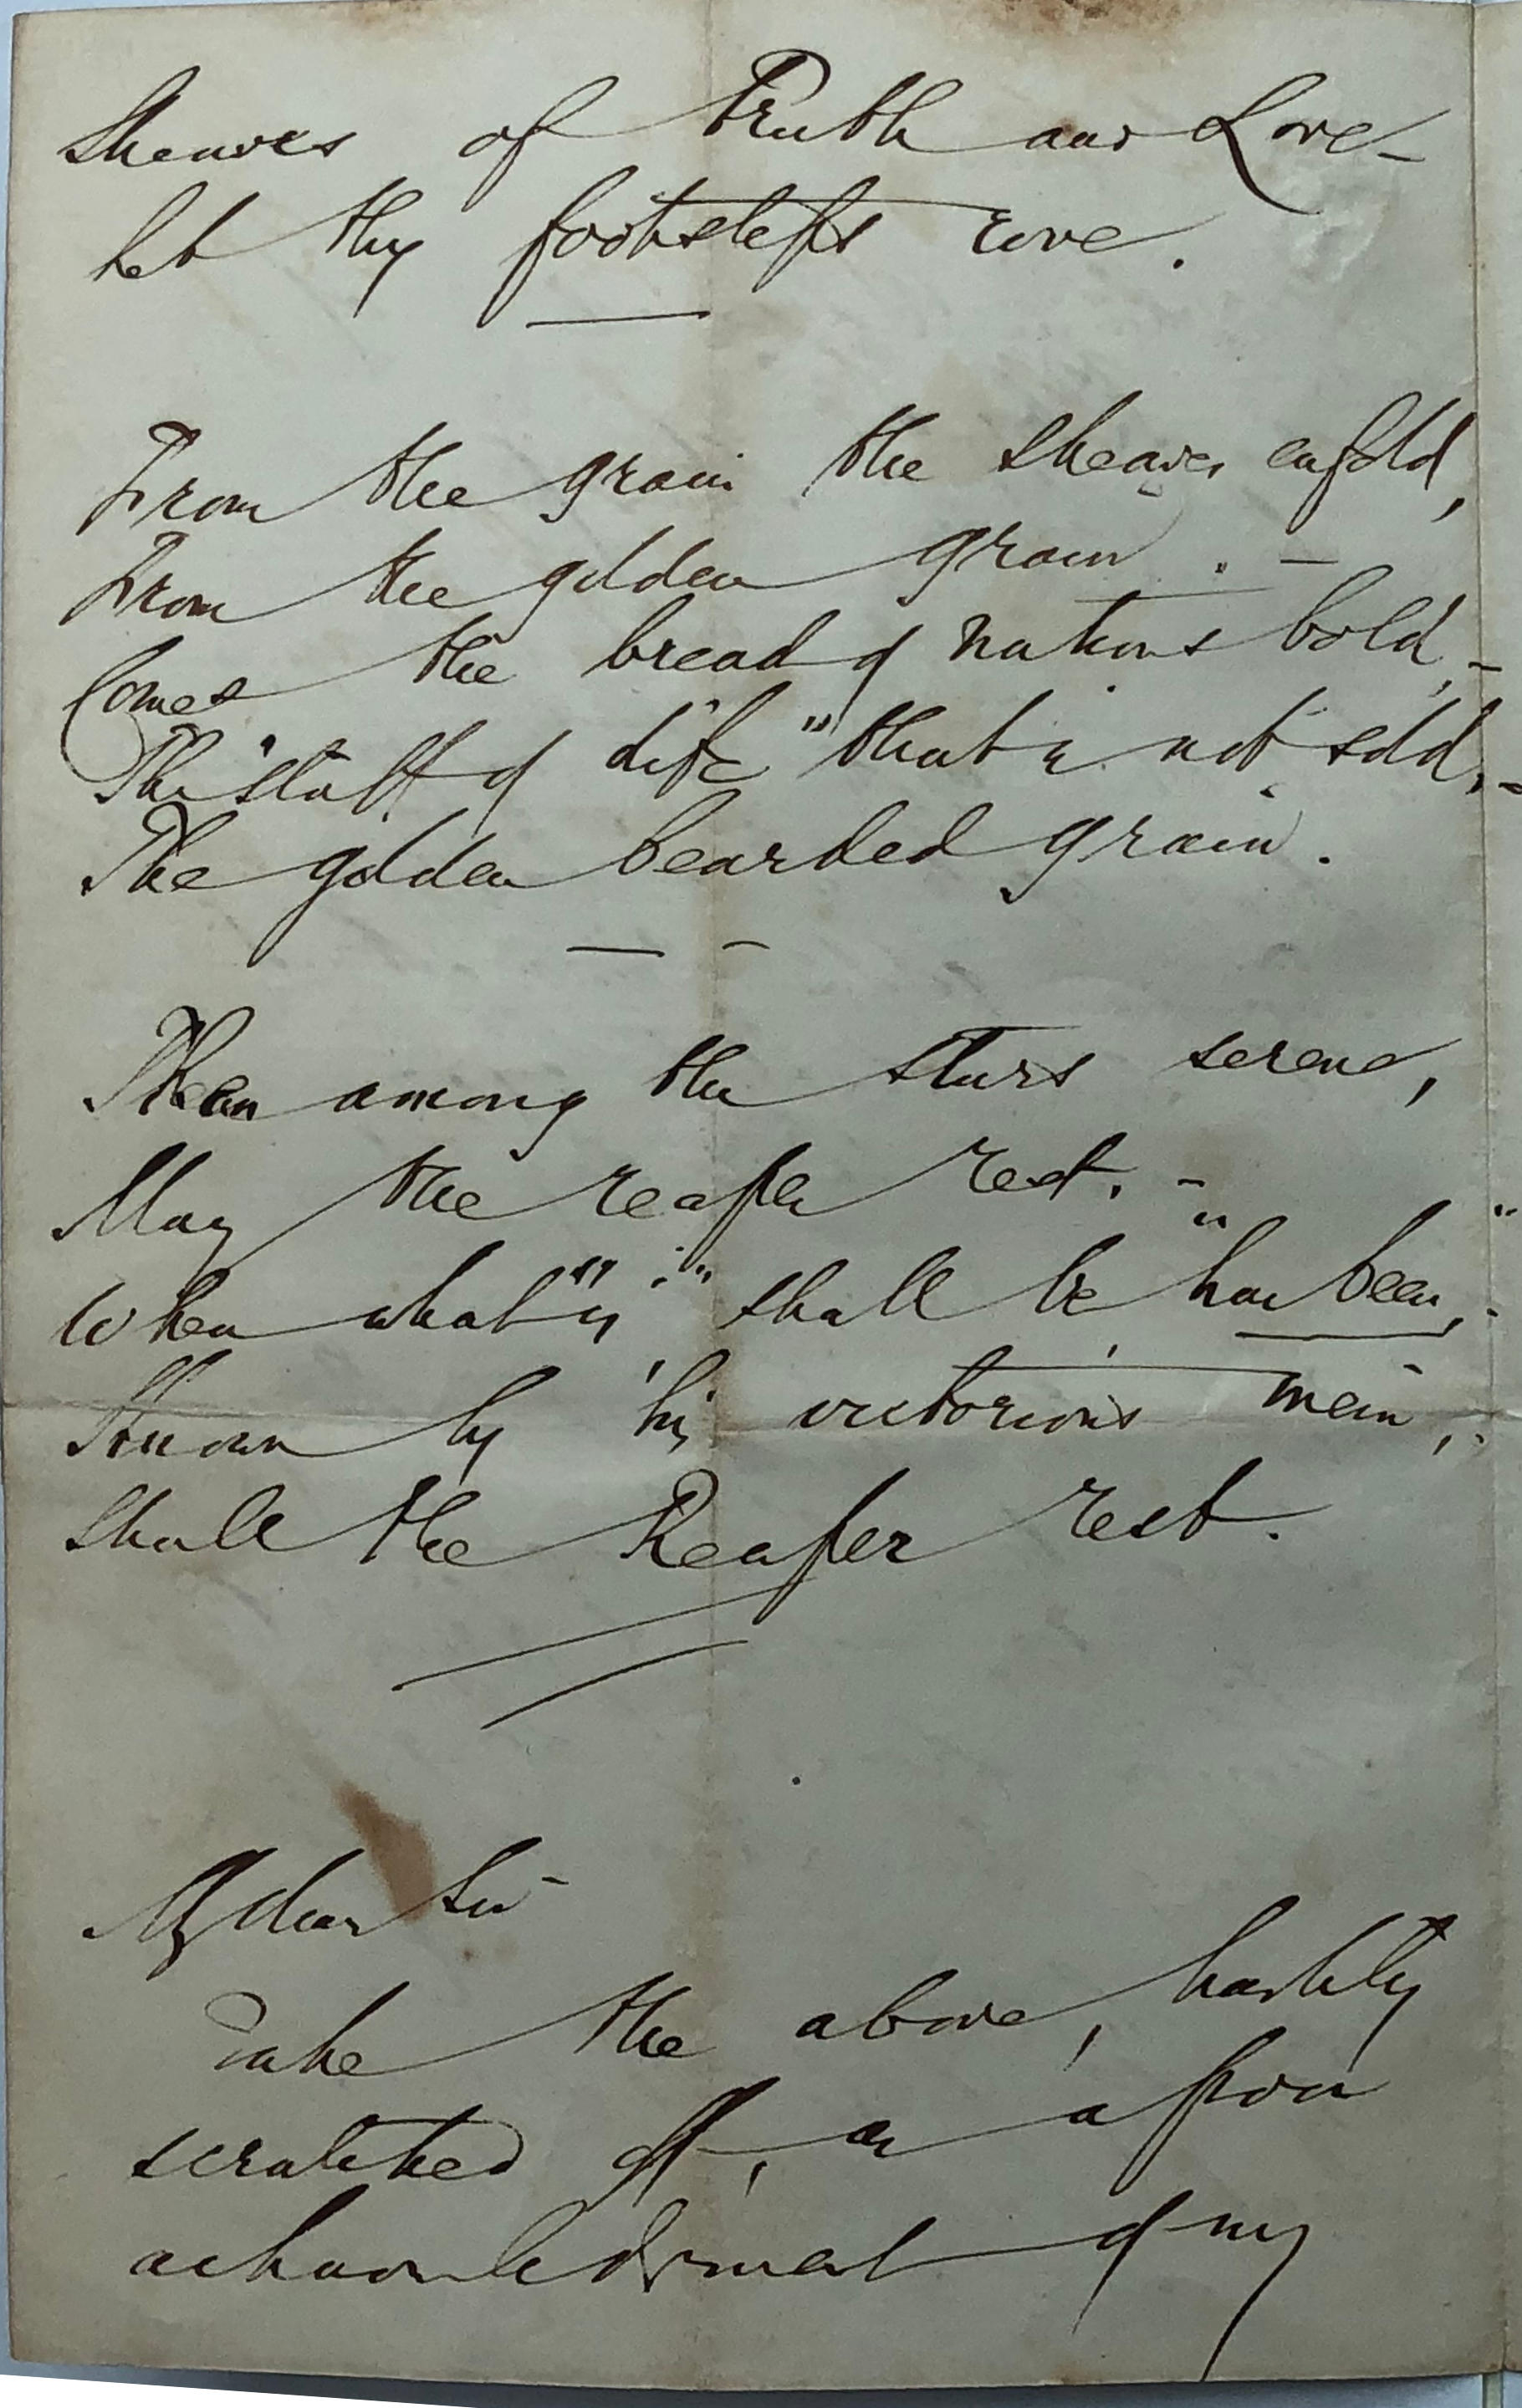 Sheaves of Truth and Love –
Let thy footsteps rove.
From the grain the sheaves enfold,
From the golden grain. –
Comes the bread of Nations bold, –
The "staff of Life" that is not sold, –
The golden bearded grain.
Then among the stars serene,
May the reaper rest. –
When what "is" shall be "has been," –
Known by his victorious mein,
Shall the Reaper rest.
My dear Sir –
Take the above, hastily
scratched off, as a poor
acknowledgment of my